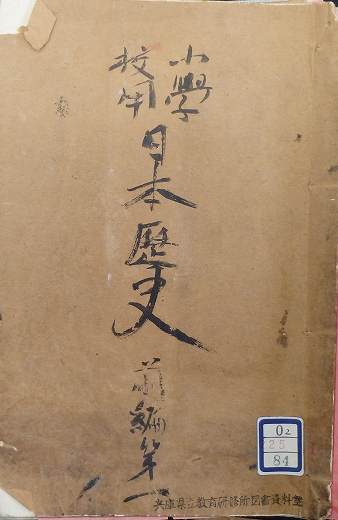 小學
校用
日本歴史
前編第一
02
25
84
兵庫県立教育研修所図書資料室